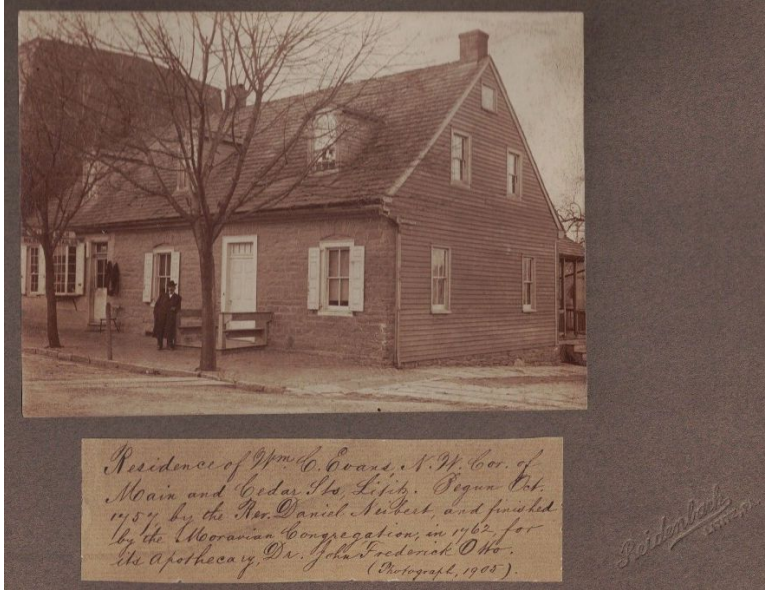 Residence of Wm. C. Evans, N. W. Cor. of
Main and Cedar Sts, Lititz. Begun Oct.
1757 by the Rev. Daniel Neibert, and finished
by the Moravian Congregation, in 1762, for
its Apothecary, Dr. John Frederick Otto.
(Photograph, 1905).
Reidenbach